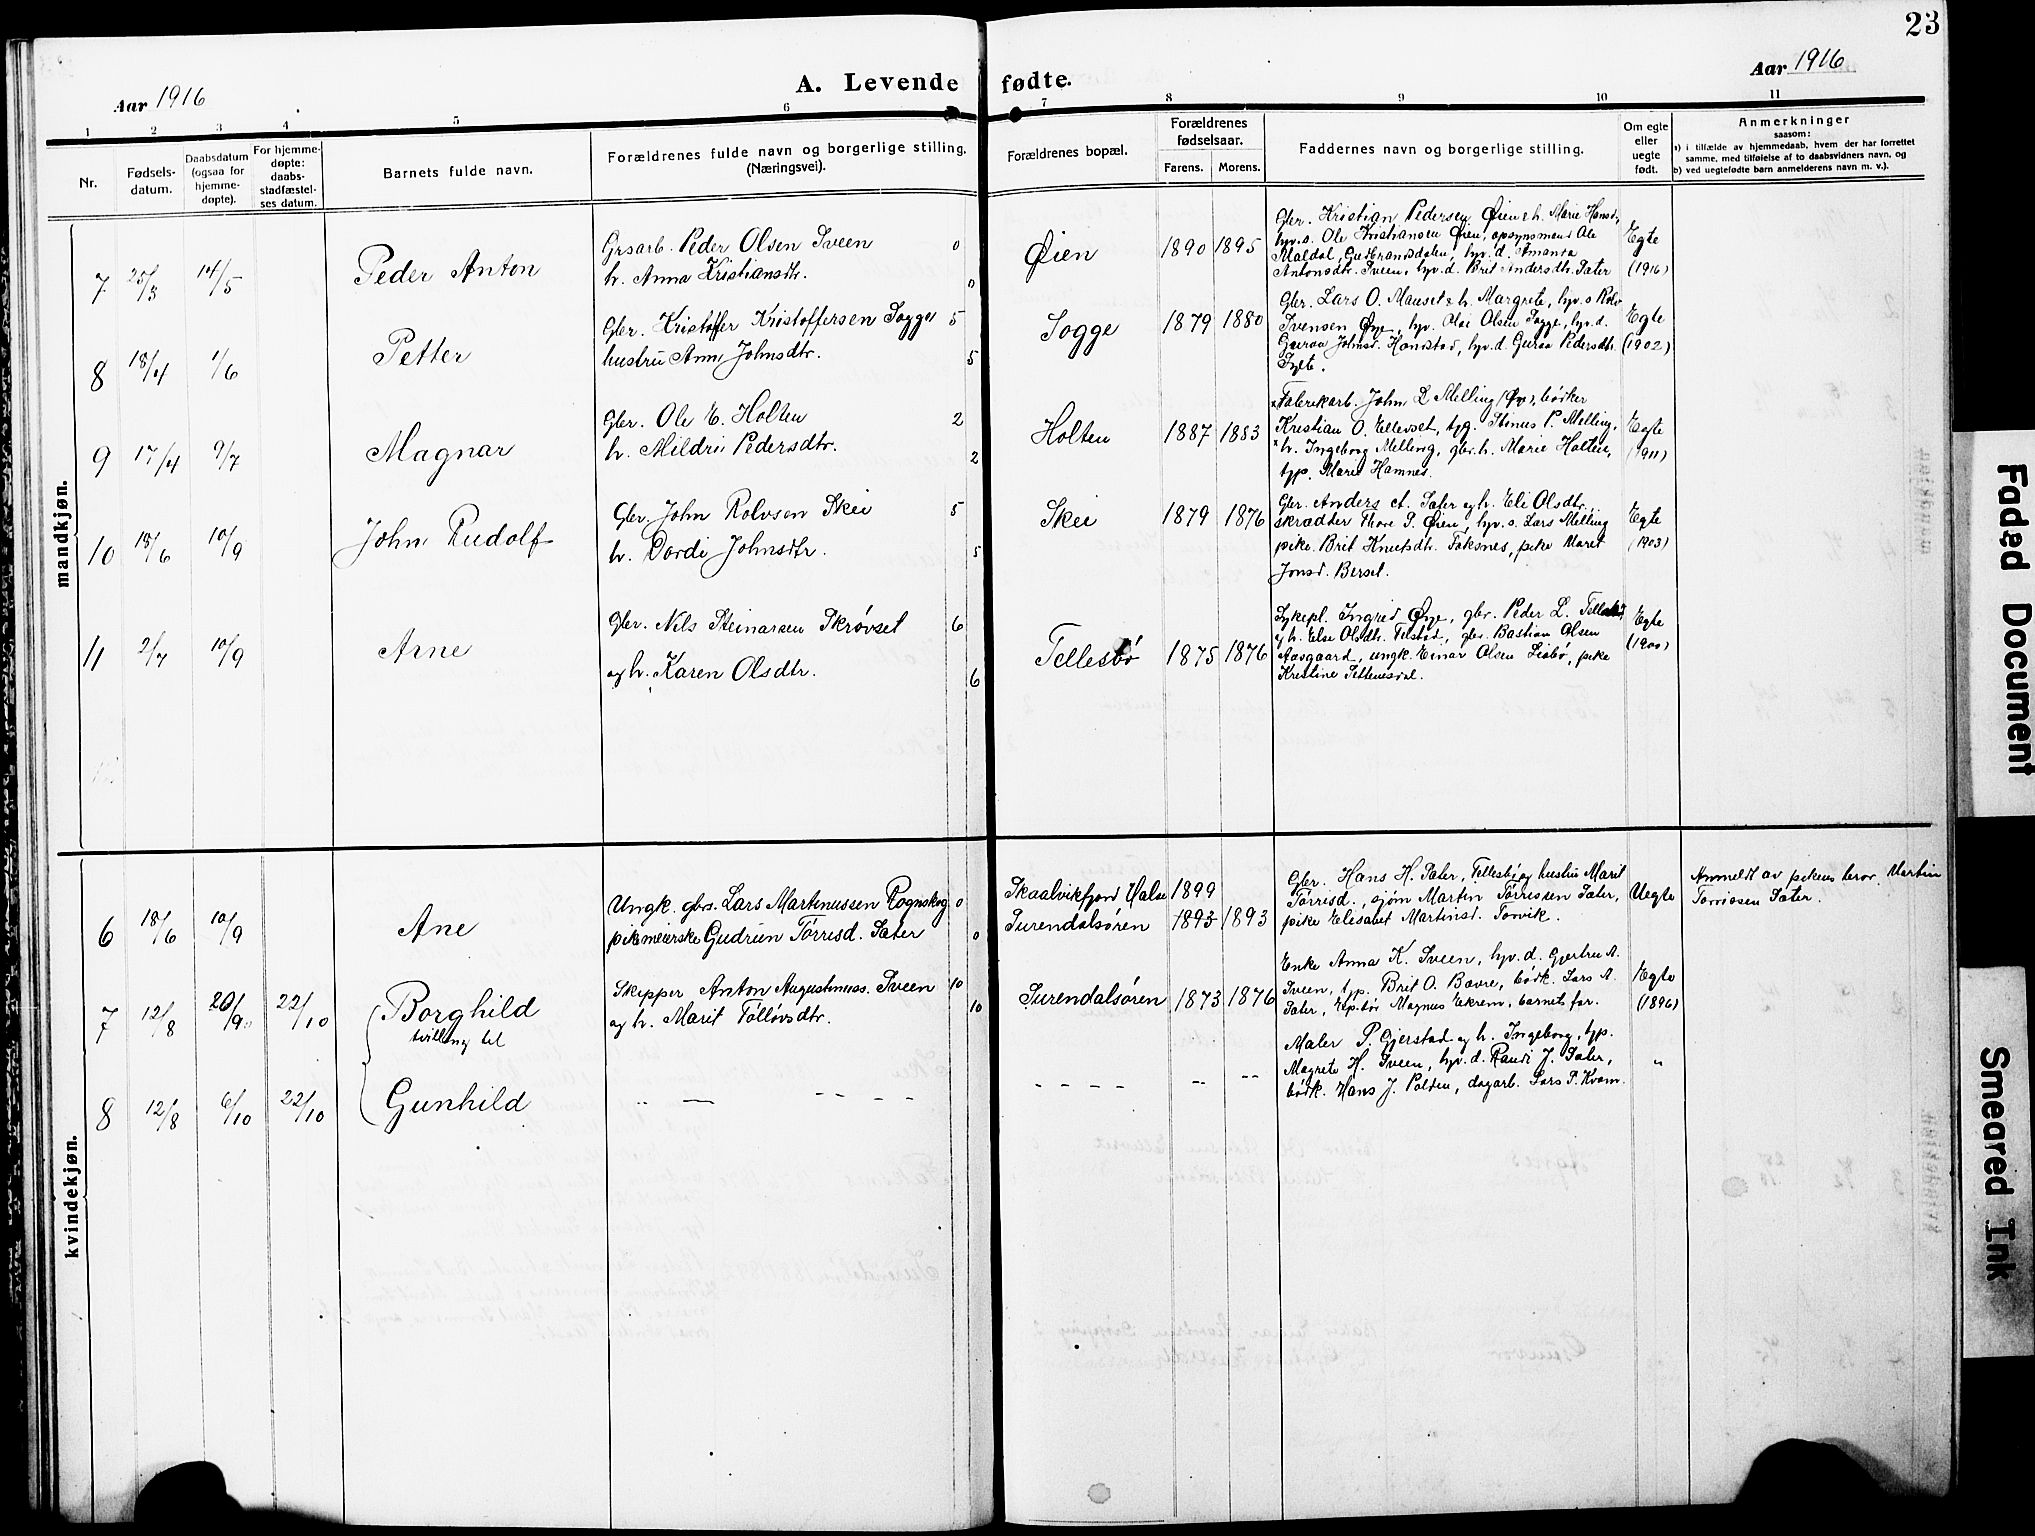 23
Aar 1916
A. Levende fødte.
Aar 1916
1 2 3 4 5 6 7 8 9 10 11
Nr.
Fødsels-
datum.
Daabsdatum
(ogsaa for
hjemme-
døpte).
For hjemme-
døpte:
daabs-
stadfæstel-
ses datum.
Barnets fulde navn.
Forældrenes fulde navn og borgerlige stilling.
(Næringsvei).
Forældrenes bopæl.
Forældrenes
fødselsaar.
Farens. Morens.
Faddernes navn og borgerlige stilling.
Om egte
eller
uegte
født.
Anmerkninger
saasom:
a) i tilfælde av hjemmedaab, hvem der har forrettet
samme, med tilføielse af to daabsvidners navn, og
b) ved uegtefødte barn anmelderens navn m. v.).
mandkjøn.
7 25/3 14/5 Peder Anton
Grsarb. Peder Olsen Sveen 0
h. Anna Kristiansdtr. 0
Øien 1890 1895
Gbr. Kristian Pedersen Øien & h. Marie Hansd.,
hyv.s. Ole Kristiansen Øien, opsynsmand Ole
Maldal, Gudbrandsdalen, hyv. d. Amanda
Antonsdtr. Sveen, hyv. d. Brit Andersdtr. Sater
Egte
(1916)
8 18/4 1/6 Petter
Gbr. Kristoffer Kristoffersen Sogge 5
hustru Ann Johnsdtr. 5
Sogge 1879 1880
Gbr. Lars O. Mauset & h. Margrete, hyv. s Rolv
Svensen Øye, hyv. Olai Olsen Sogge, hyv. d.
Guraa Johnsd. Honstad, hyv. d. Guraa Pedersdtr.
Sylte.
Egte
(1902)
9 17/4 9/7 Magnar
Gbr. Ole E. Holten 2
h. Mildri Pedersdtr. 2
Holten 1887 1883
Fabrikarb. John L Melling (Øv), bødker
Kristian O. Ellevset, tyg. Stinus P. Melling,
h. Ingeborg Melling, gbr.h. Marie Holten,
typ. Marie Hamnes.
Egte
(1911)
10 18/6 10/9 John Rudolf
Gbr. John Rolvsen Skei 5
h. Dordi Johnsdtr. 5
Skei 1879 1876
Gbr. Anders A. Sater og h. Eli Olsdtr.,
skrædder Thore P. Øien, hyv. s. Lars Melling
pike. Brit Knutsdtr. Foksnes, pike Maret
Jonsd. Berset.
Egte
(1903)
11 2/7 10/9 Arne
Gbr. Nils Steinarsen Skrøvset 6
og h. Karen Olsdtr. 6
Tellesbø 1875 1876
Sykepl. Ingrid Øye, gbr. Peder L.
og h. Else Olsdtr. Telstad, gbr. Bastian Olsen
Aasgaard, ungk. Einar Olsen Sesbø, pike
Kristine Settemsdal.
Egte
(1900)
kvindekjøn.
6 18/6 10/9 Ane
Ungk. gbrs. Lars Martinussen Rognskog 0
pike meierske Gudrun Tørrisd. Sæter 0
Skaalvikfjord Halse 1899
Surendalsøren 1893 1893
Gbr. Hans H. Sater, Tellesbø og hustru Marit
Tørrisd., sjøm Martin Tørrissen Sater,
pike Elisabet Martinsd. Torvik.
Uegte
Anmeldt av pikens bror Martin
Tørrissen Sater.
7 12/8 20/9. 22/10 Borghild
tvilling til
Skipper Anton Augustinuss. Sveen 10
og h. Marit Tølløvsdtr. 10
Surendalsøren 1873 1876
Enke Anna K. Sveen, hyv. d. Gjertru A.
Sveen, typ. Brit O. Bævre, bødk. Lars A.
Sater, Magnus Ekrem, barnets far.
Egte
(1896)
8 12/8 6/10 22/10 Gunhild
Maler P. Gjerstad og h. Ingeborg, typ.
Magrete H. Sveen, hyv. d. Randi J. Sater,
bødk. Hans J. Polden, dagarb. Lars P. Kvam.
"
Faded Document
Smeared Ink